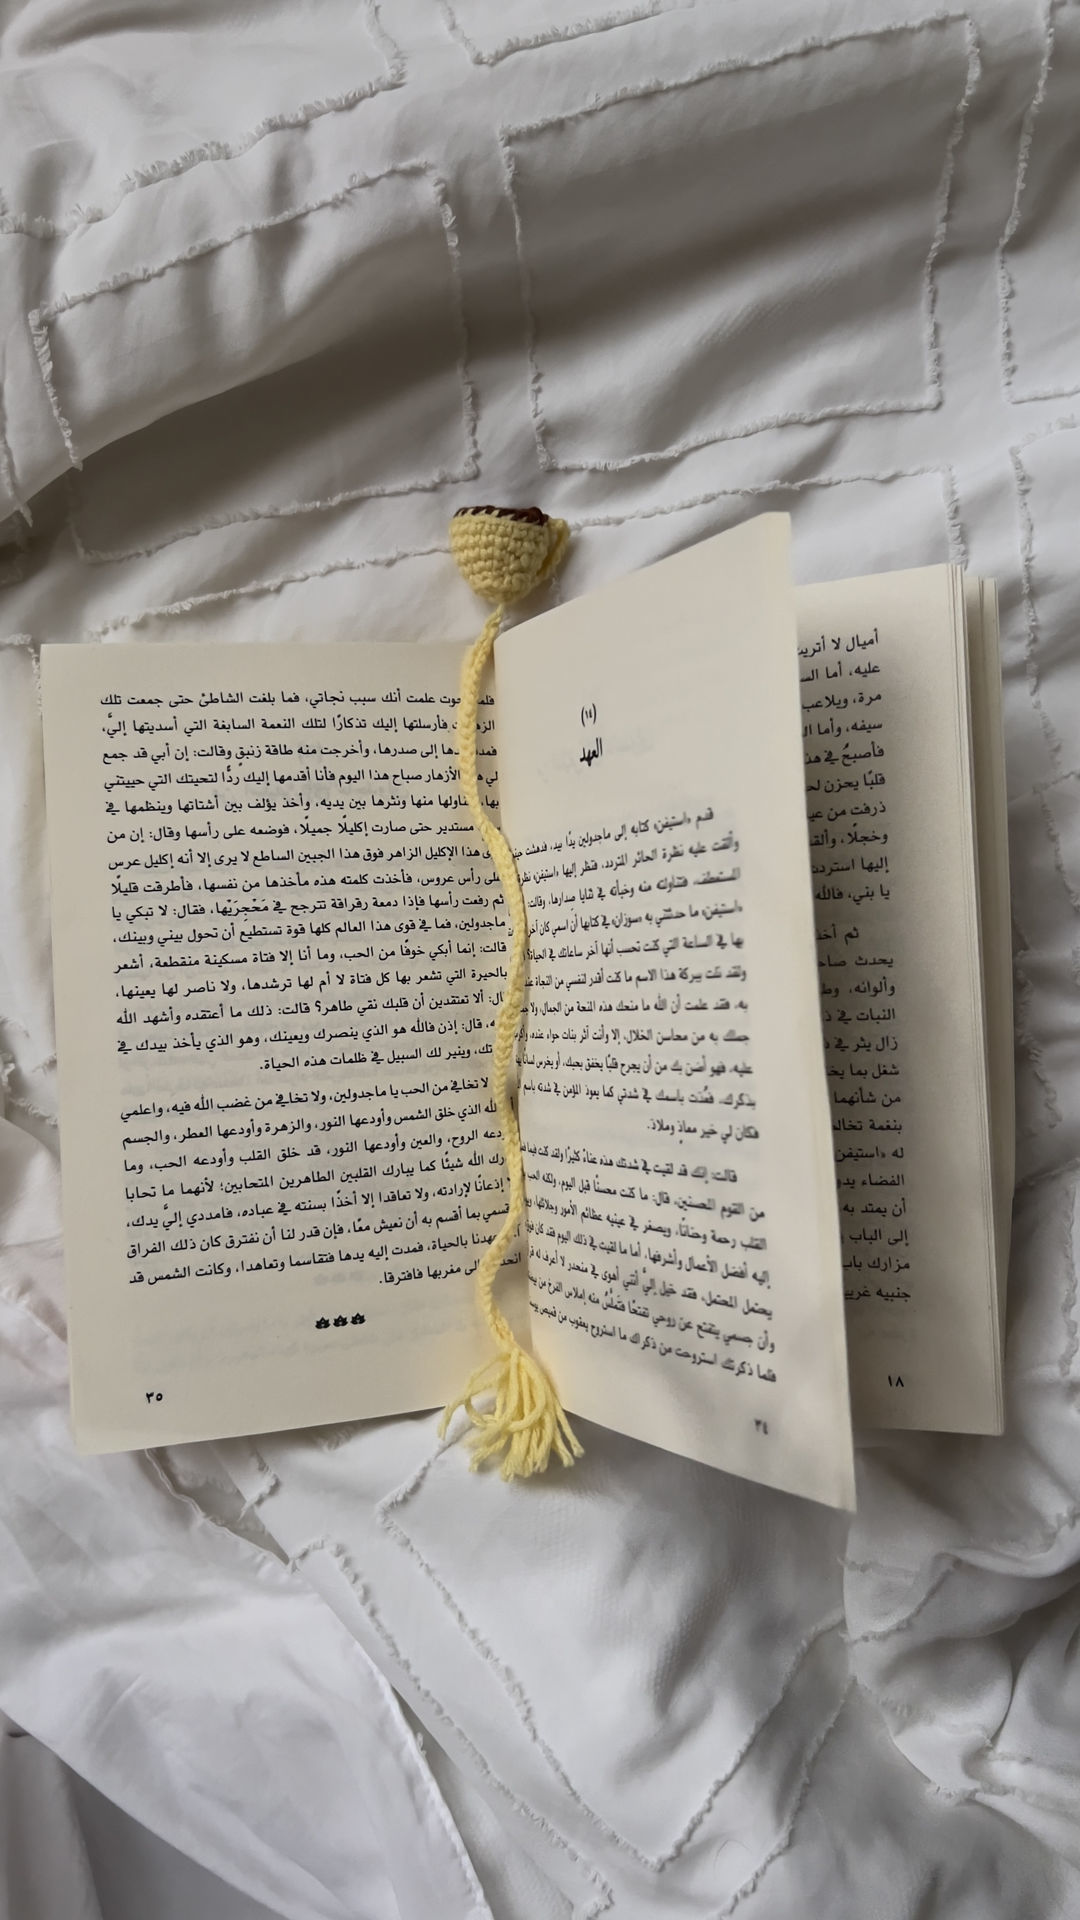 أميال لا أتريث
عليه، أما الس
مرة، ويلاعب
سيفه، وأما ال
فأصبحُ في هذ
قلبًا يحزن لح
ذرفت من عي
وخجلًا، وألق
إليها استردت
يا بني، فالله
ثم أخذ
يحدث صاح
وألوانه، وط
النبات في ذ
زال يثر في ذ
شغل بما يخ
من شأنهما
بنغمة تخال
له «استيفن
الفضاء يدو
أن يمتد به
إلى الباب و
مزارك باب
جنبيه غريب
١٨
(١٤)
العهد
قدم «استيفن» كتابه إلى ماجدولين يدًا بيد، فدهشت
وألقت عليه نظرة الحائر المتردد، فنظر إليها «استيفن» نظرة
المستعطف، فتناولته منه وخبأته في ثنايا صدارها، وقالت:
«استيفن» ما حدثتني به «سوزان» في كتابها أن اسمي كان آخر
بها في الساعة التي كنت تحسب أنها آخر ساعاتك في الحياة؟
ولقد نلت ببركة هذا الاسم ما كنت أقدر لنفسي من النجاة
به، فقد علمت أن الله ما منحك هذه المنحة من الجمال، ولا
جملك به من محاسن الخلال، إلا وأنت آثر بنات حواء عنده،
عليه، فهو أضن بك من أن يجرح قلبًا يخفق بحبك، أو يخرس لسانًا
بذكرك، فعُذت باسمك في شدتي كما يعوذ المؤمن في شدته باسم
فكان لي خير معاذٍ وملاذ.
قالت: إنك قد لقيت في شدتك هذه عناءً كثيرًا ولقد كنت فيما
من القوم المحسنين، قال: ما كنت محسنًا قبل اليوم، ولكنه الحب
القلب رحمة وحنانًا، ويصغر في عينيه عظائم الأمور وجلائلها،
إليه أفضل الأعمال وأشرفها، أما ما لقيت في ذلك اليوم فقد كان فوق
يحتمل المحتمل، فقد خيل إليَّ أنني أهوي في منحدر لا أعرف له
وأن جسمي يتفتح عن روحي تفتحًا فتملُّسُ منه إملاس الفرخ من
فلما ذكرتك استروحت من ذكراك ما استروح يعقوب من قميص
٣٤
نجوت علمت أنك سبب نجاتي، فما بلغت الشاطئ حتى جمعت تلك
فأرسلتها إليك تذكارًا لتلك النعمة السابغة التي أسديتها إليَّ،
يدها إلى صدرها، وأخرجت منه طاقة زنبقٍ وقالت: إن أبي قد جمع
لي الأزهار صباح هذا اليوم فأنا أقدمها إليك ردًّا لتحيتك التي حييتني
بها، فتناولها منها ونثرها بين يديه، وأخذ يؤلف بين أشتاتها وينظمها في
مستدير حتى صارت إكليلًا جميلًا، فوضعه على رأسها وقال: إن من
هذا الإكليل الزاهر فوق هذا الجبين الساطع لا يرى إلا أنه إكليل عرس
على رأس عروس، فأخذت كلمته هذه مأخذها من نفسها، فأطرقت قليلًا
ثم رفعت رأسها فإذا دمعة رقراقة تترجح في مَحْجِرَيْها، فقال: لا تبكي يا
ماجدولين، فما في قوى هذا العالم كلها قوة تستطيع أن تحول بيني وبينك،
قالت: إنما أبكي خوفًا من الحب، وما أنا إلا فتاة مسكينة منقطعة، أشعر
بالحيرة التي تشعر بها كل فتاة لا أم لها ترشدها، ولا ناصر لها يعينها،
قال: ألا تعتقدين أن قلبك نقي طاهر؟ قالت: ذلك ما أعتقده وأشهد الله
قال: إذن فالله هو الذي ينصرك ويعينك، وهو الذي يأخذ بيدك في
وينير لك السبيل في ظلمات هذه الحياة.
لا تخافي من الحب يا ماجدولين، ولا تخافي من غضب الله فيه، واعلمي
الله الذي خلق الشمس وأودعها النور، والزهرة وأودعها العطر، والجسم
وأودعه الروح، والعين وأودعها النور، قد خلق القلب وأودعه الحب، وما
الله شيئًا كما يبارك القلبين الطاهرين المتحابين؛ لأنهما ما تحابا
إذعانًا لإرادته، ولا تعاقدا إلا أخذًا بسنته في عباده، فامددي إليَّ يدك،
بما أقسم به أن نعيش معًا، فإن قدر لنا أن نفترق كان ذلك الفراق
عهدنا بالحياة، فمدت إليه يدها فتقاسما وتعاهدا، وكانت الشمس قد
إلى مغربها فافترقا.
٣٥